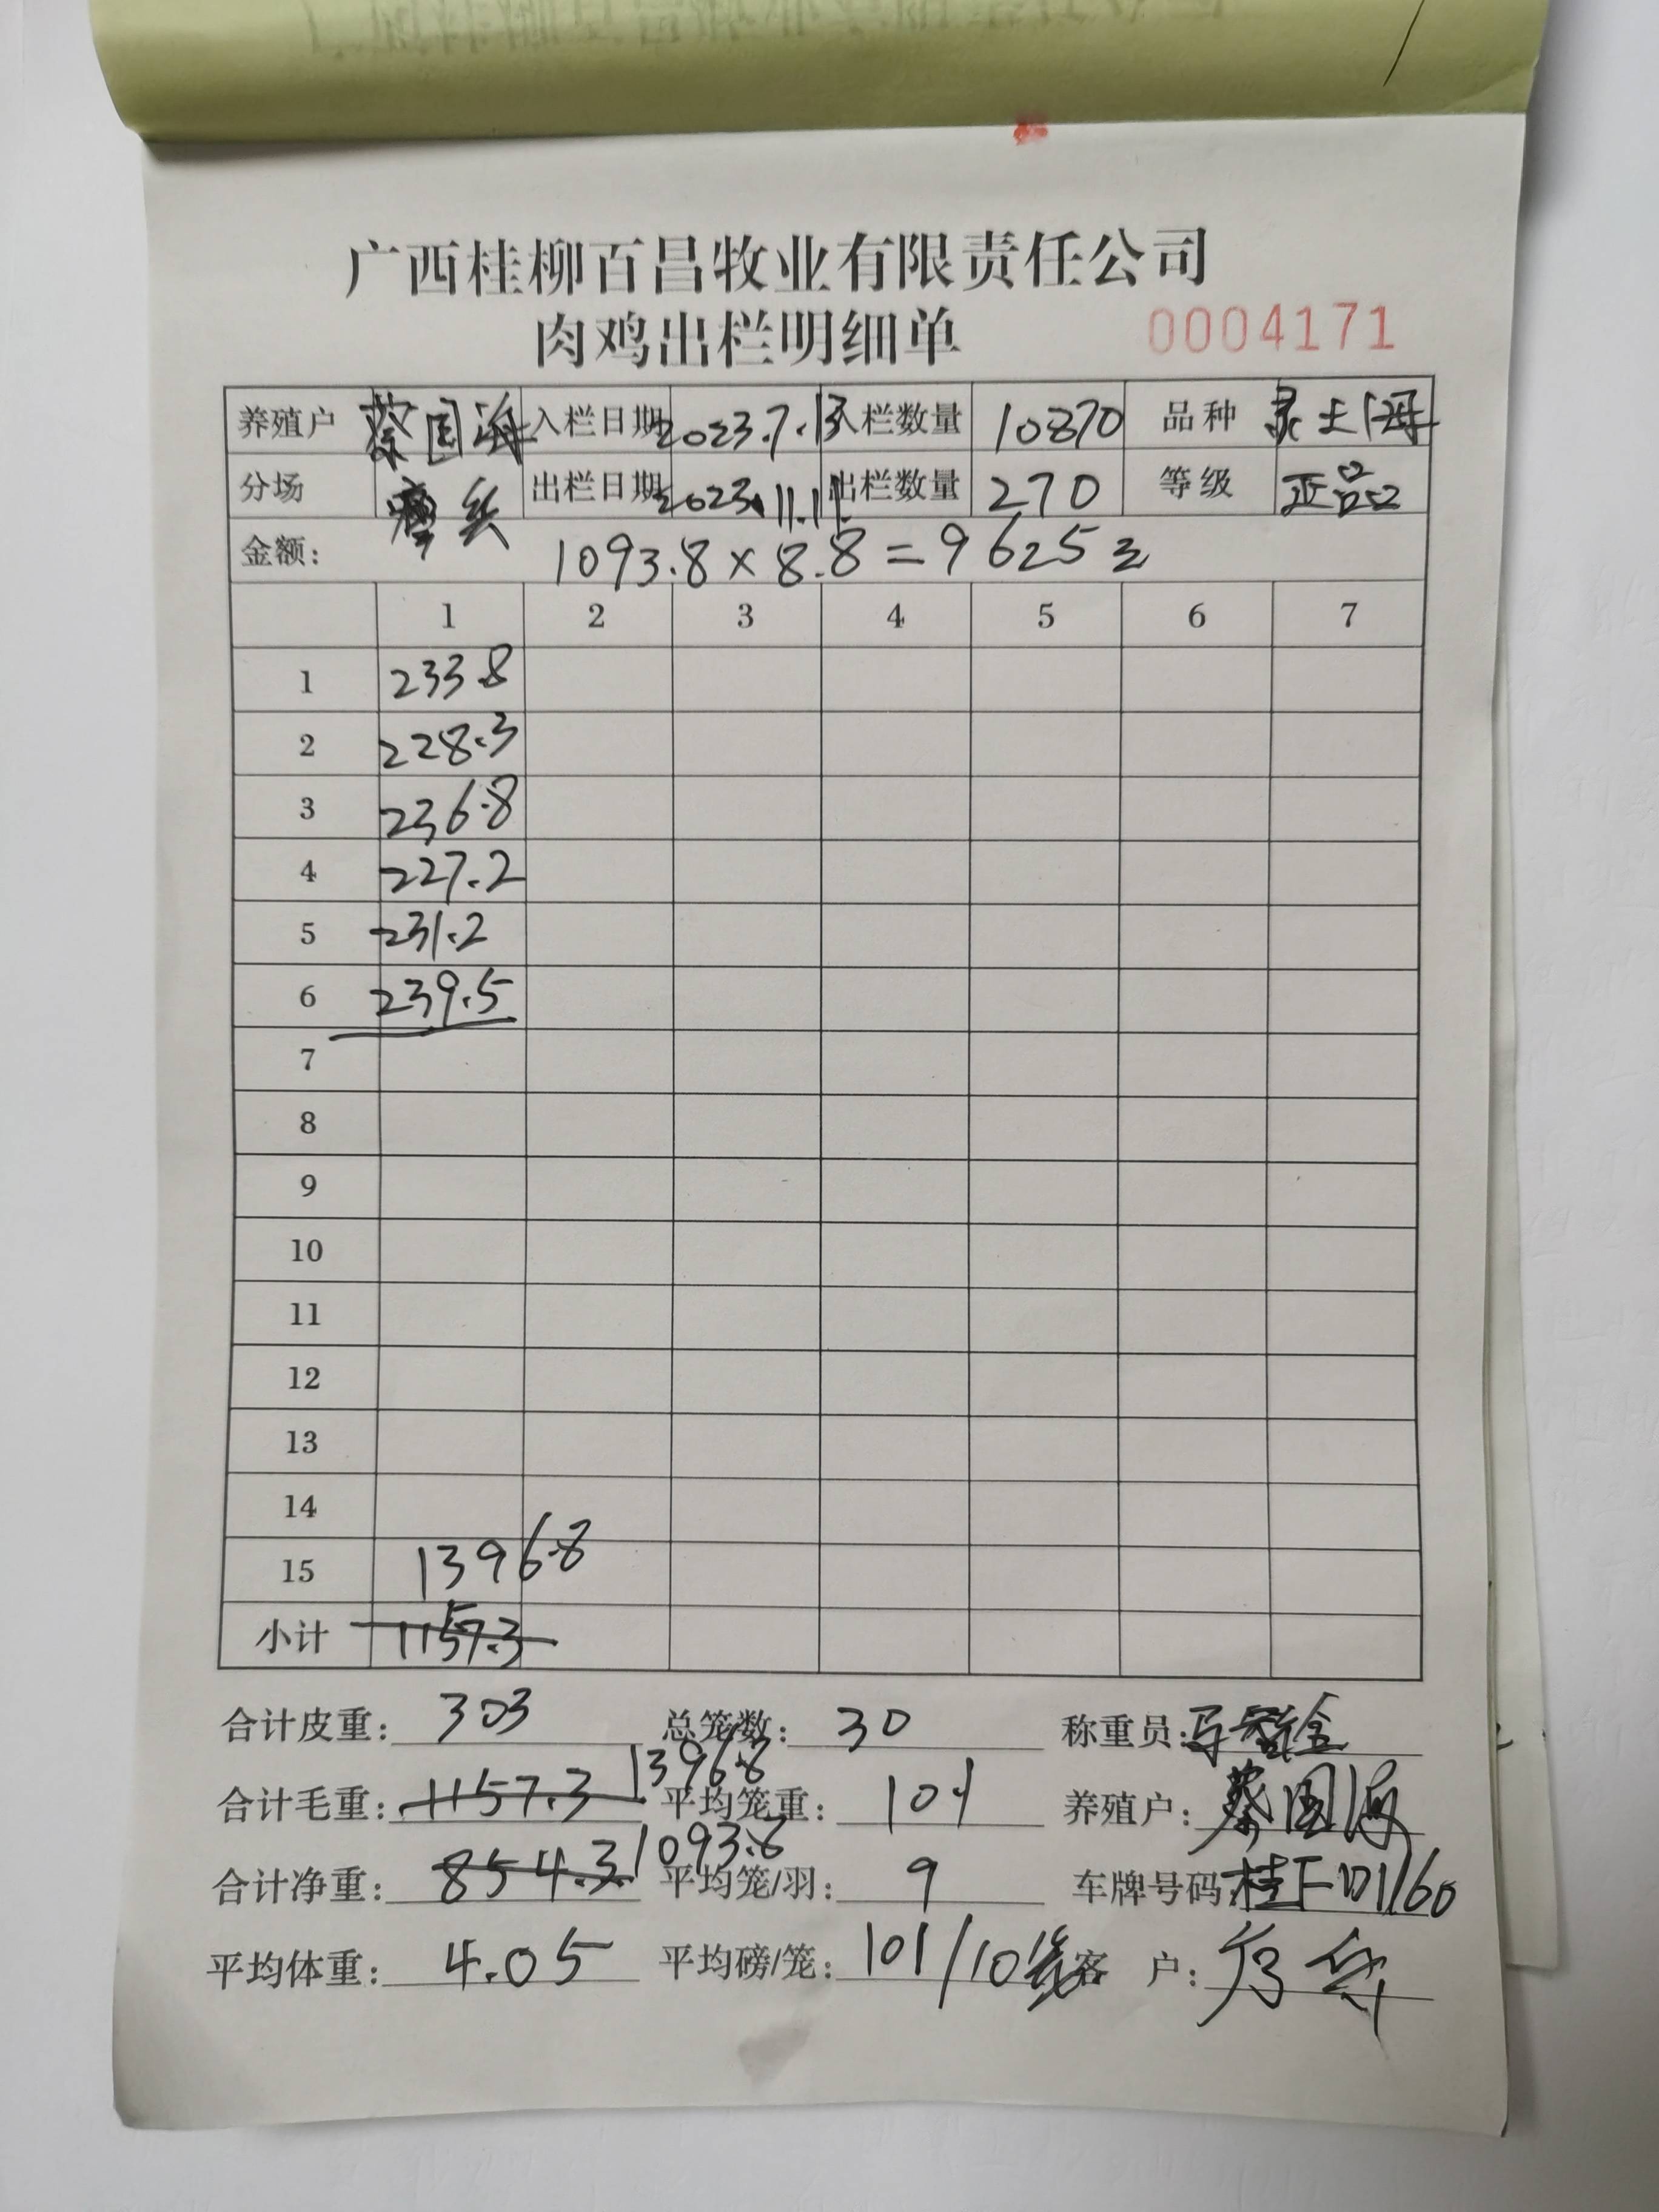 广西桂柳百昌牧业有限责任公司
肉鸡出栏明细单 0004171
养殖户 蔡国海 入栏日期 2023.7.13 入栏数量 10870 品种
分场 出栏日期 2023.11.11 出栏数量 270 等级 正品
金额: 1093.8×8.8=9625元
1 2 3 4 5 6 7
1 233.8
2 228.3
3 236.8
4 227.2
5 231.2
6 239.5
7
8
9
10
11
12
13
14
15 1396.8
小计 1157.3
合计皮重: 303 总笼数: 30 称重员:
合计毛重: 1157.3 1396.8 平均笼重: 10.1 养殖户: 蔡国海
合计净重: 854.3 1093.8 平均笼/羽: 9 车牌号码:
平均体重: 4.05 平均磅/笼: 101/10 客 户: